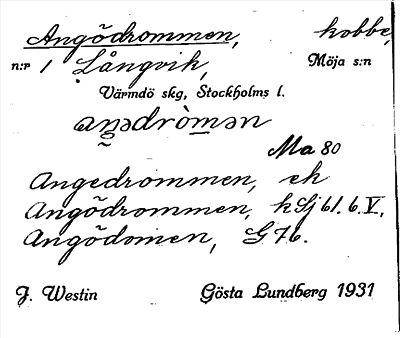 Angödrommen, kobbe,
n:r 1 Långvik, Möja s:n
Värmdö skg, Stockholms l.
Ma 80
Angedrommen, ek
Angödrommen, k Sj 61. 6. V,
Angödomen, G 76.
J. Westin Gösta Lundberg 1931